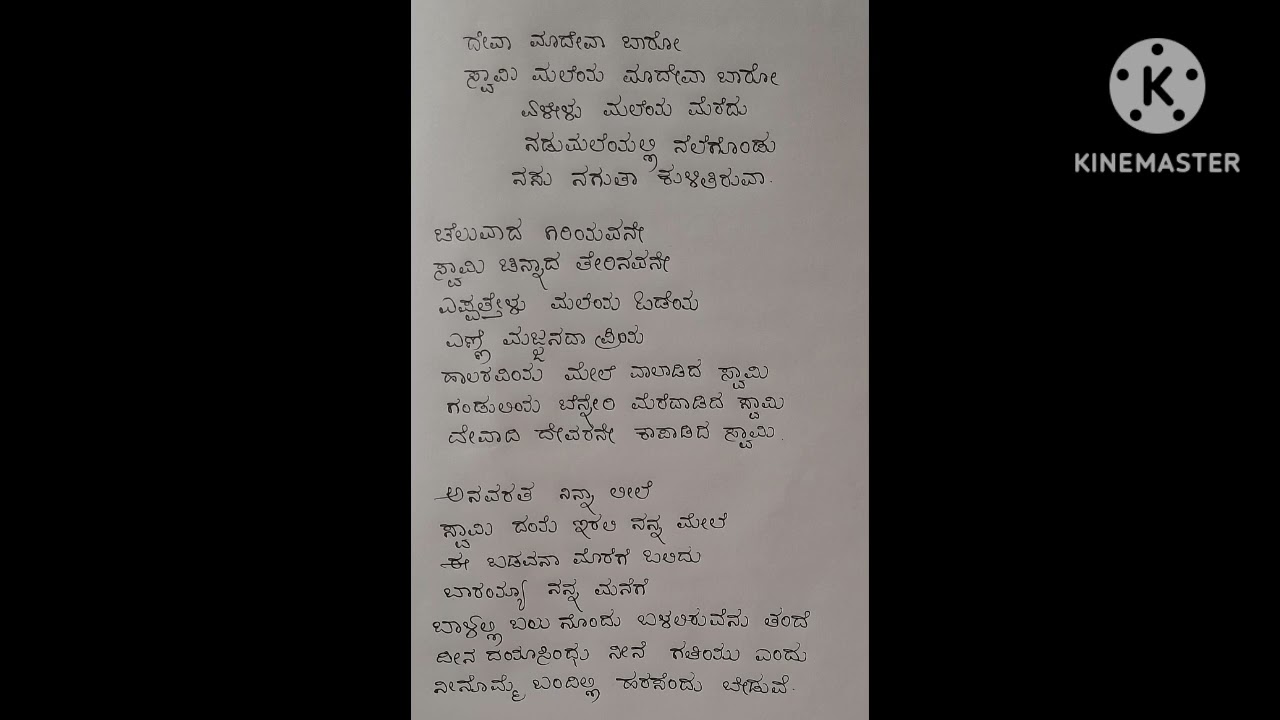 ದೇವಾ ಮಾದೇವಾ ಬಾರೋ
ಸ್ವಾಮಿ ಮಲೆಯ ಮಾದೇವಾ ಬಾರೋ
ಏಳೇಳು ಮಲೆಯ ಮೆರೆದು
ನಡುಮಲೆಯಲ್ಲಿ ನೆಲೆಗೊಂಡು
ನಸು ನಗುತಾ ಕುಳಿತಿರುವಾ.
ಚೆಲುವಾದ ಗಿರಿಯವನೇ
ಸ್ವಾಮಿ ಚಿನ್ನಾದ ತೇರಿನವನೇ
ಎಪ್ಪತ್ತೇಳು ಮಲೆಯ ಒಡೆಯ
ಎಣ್ಣೆ ಮಜ್ಜನದಾ ಪ್ರಿಯ
ಹಾಲರವಿಯ ಮೇಲೆ ವಾಲಾಡಿದ ಸ್ವಾಮಿ
ಗಂಡುಲಿಯ ಬೆನ್ನೇರಿ ಮೆರೆದಾಡಿದ ಸ್ವಾಮಿ
ದೇವಾದಿ ದೇವರನೇ ಕಾಪಾಡಿದ ಸ್ವಾಮಿ.
ಅನವರತ ನಿನ್ನಾ ಲೀಲೆ
ಸ್ವಾಮಿ ದಯೆ ಇರಲಿ ನನ್ನ ಮೇಲೆ
ಈ ಬಡವನಾ ಮೊರೆಗೆ ಒಲಿದು
ಬಾರಯ್ಯಾ ನನ್ನ ಮನೆಗೆ
ಬಾಳಲ್ಲಿ ಬಲು ನೊಂದು ಬಳಲಿರುವೆನು ತಂದೆ
ದೀನ ದಯಾಸಿಂಧು ನೀನೆ ಗತಿಯು ಎಂದು
ನೀನೊಮ್ಮೆ ಬಂದಿಲ್ಲಿ ಹರಸೆಂದು ಬೇಡುವೆ.
K
KINEMASTER